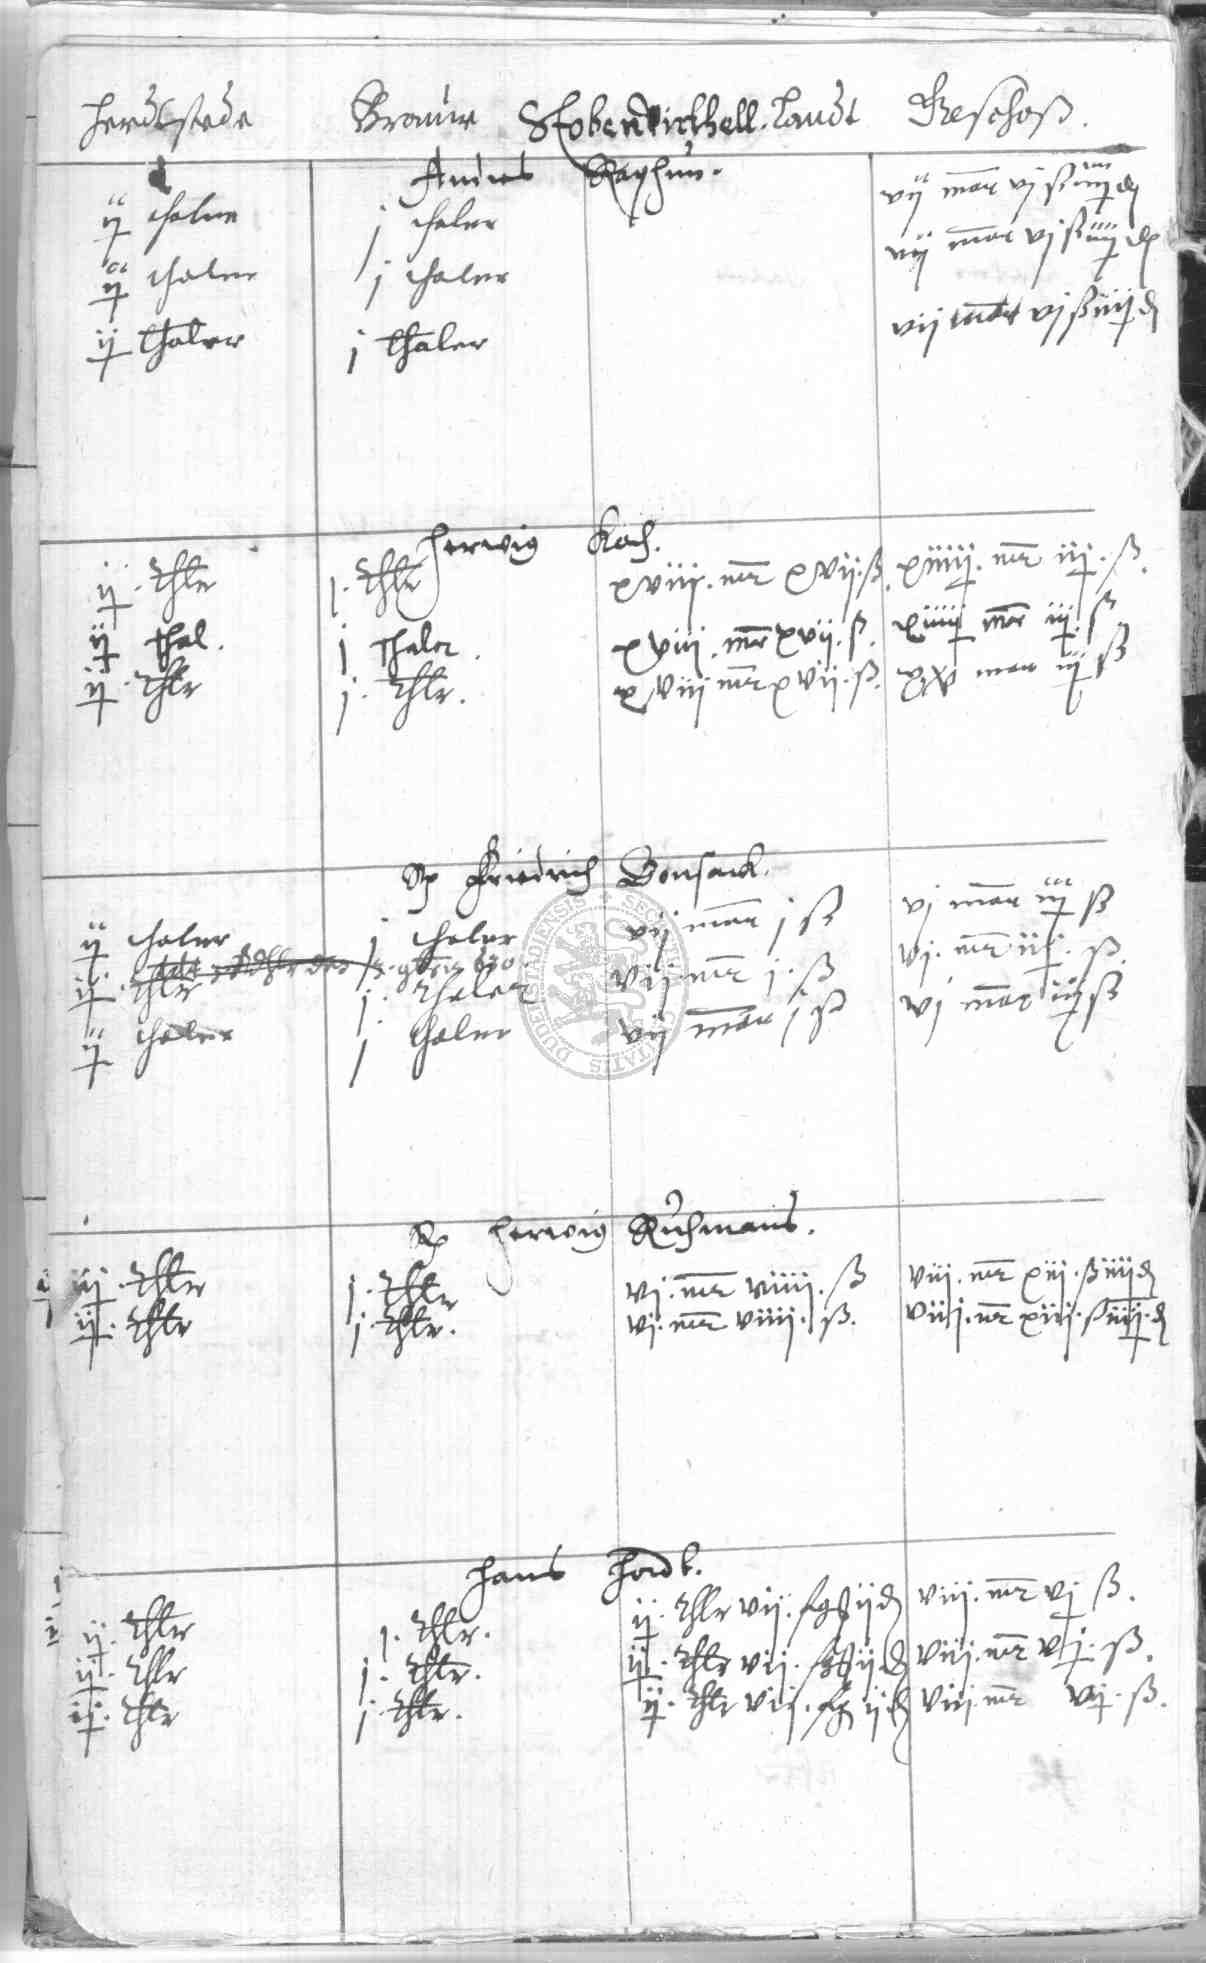 Herdtstede Brauwe Landt Geschoß.
Andres
ij thaler j thaler vij mar vj ß iiij ₰
ij thaler j thaler vij mar vj ß iiij ₰
ij thaler j thaler vij mar vj ß iiij ₰
Herwig Koch.
ij. thlr j. thlr xviij. mr xvij. ß. xiiij. mr iij. ß.
ij thal. j thaler. xviij. mr xvij. ß. xiiij mr iij. ß
ij. thlr j. thlr. xviij mr xvij. ß. mar iij ß
Friedrich Bonsack.
ij thaler j thaler vij mar j ß vj mar iij ß
ij. thlr j. thaler vij. mr j. ß vj. mr iij. ß.
ij thaler j thaler vij mar j ß vj mar iij ß
Herwig Kuhmans.
ij. thlr j. thlr vj. mr viiij. ß viij. mr xiij. ß iiij ₰
ij. thlr j. thlr. vj. mr viiij. ß. viij. mr xiij. ß iiij. ₰
Hans
ij. thlr j. thlr. ij. thlr vij. ij ₰ viij. mr vj ß.
ij. thlr j. thlr. ij. thlr vij. ij ₰ viij. mr vj. ß.
ij. thlr j. thlr. ij. thlr vij. ij ₰ viij. mr vj. ß.
SECR DUDERSTADIENSIS